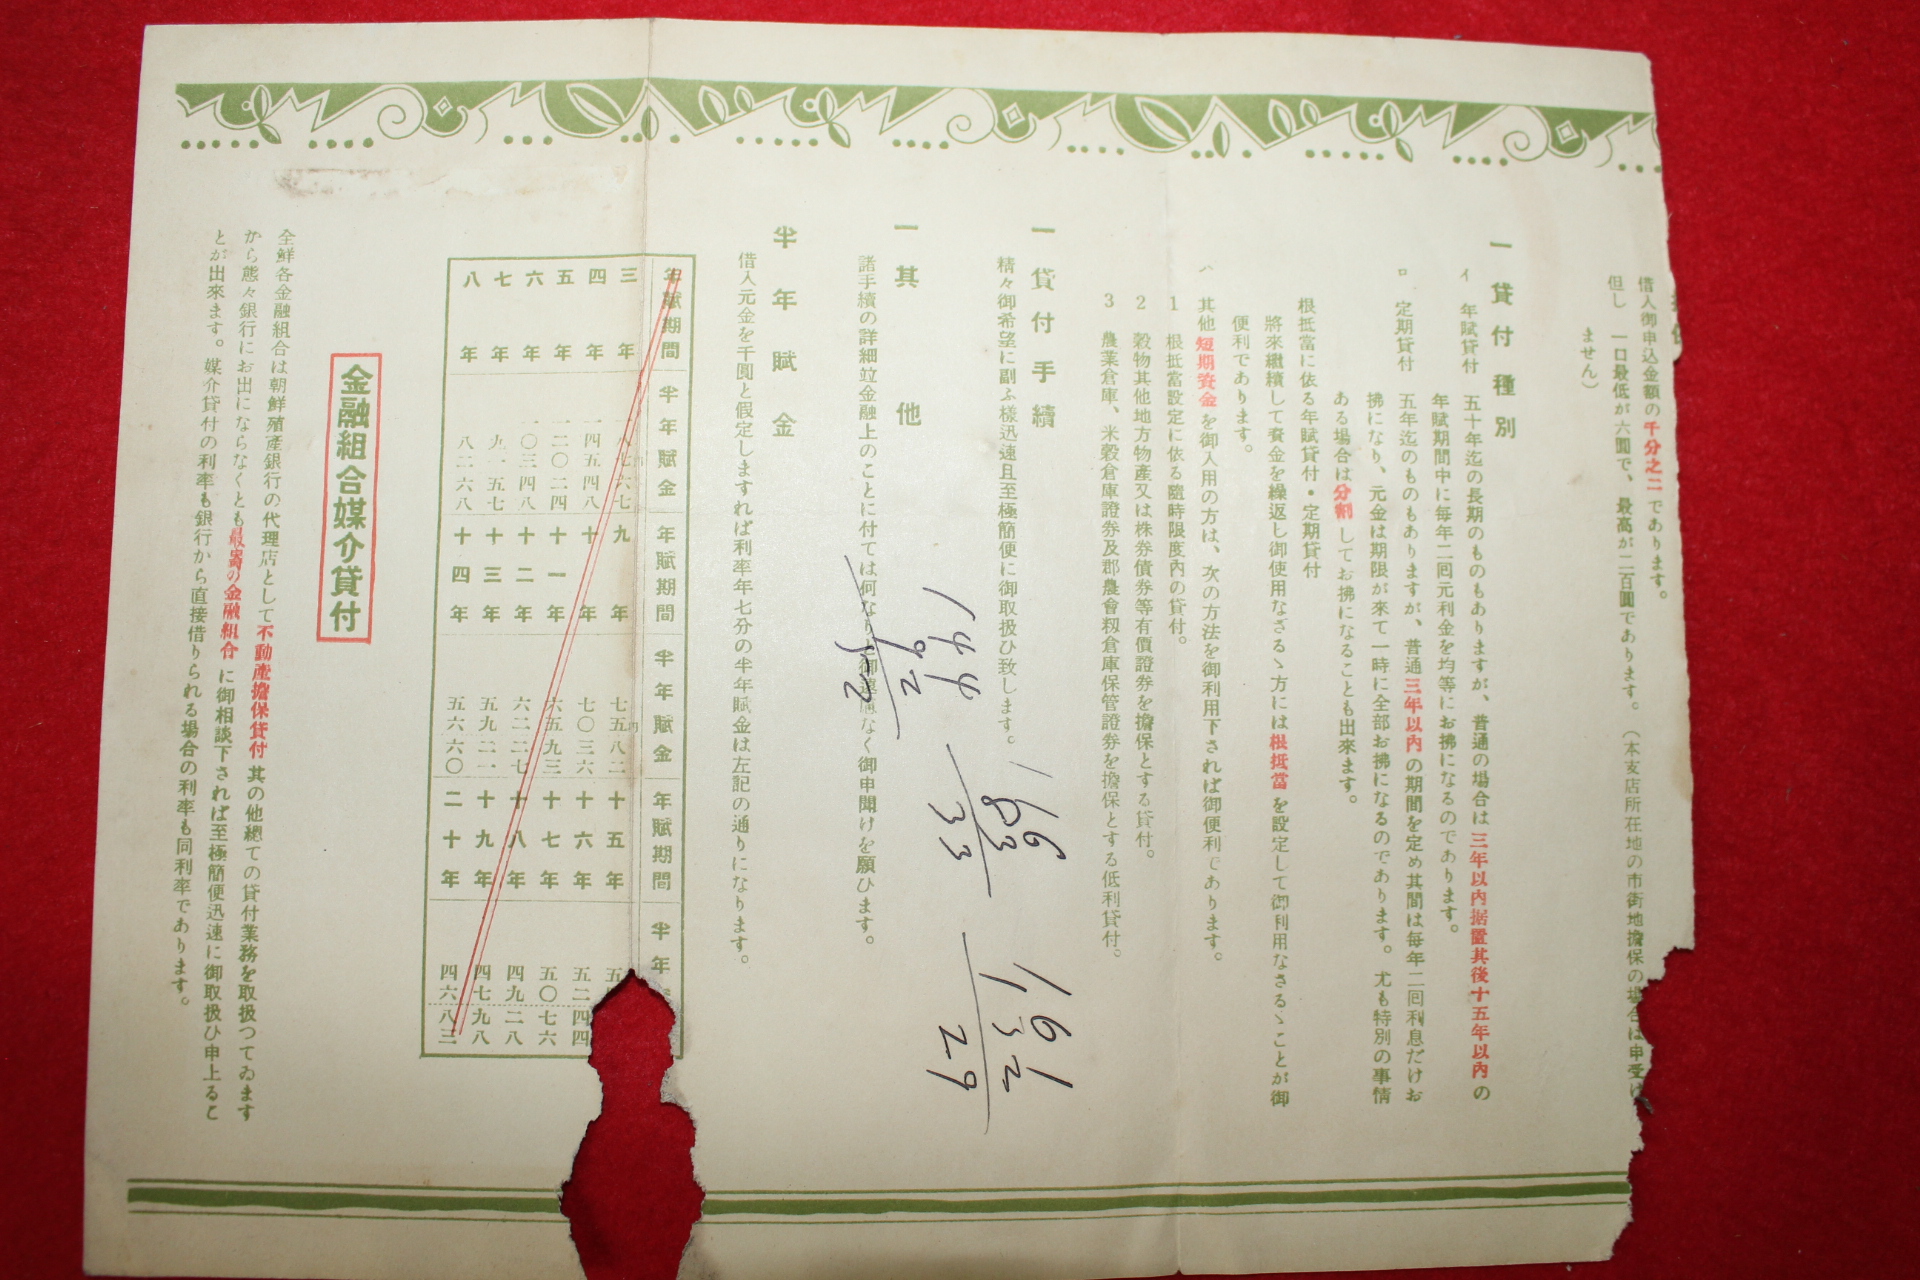 借入御申込金額の千分之二であります。
但し 一口最低が六圓で、最高が二百圓であります。(本支店所在地の市街地擔保の場合は申受け
ません)
一 貸付種別
イ 年賦貸付 五十年迄の長期のものもありますが、普通の場合は三年以內据置其後十五年以內の
年賦期間中に每年二回元利金を均等にお拂になるのであります。
ロ 定期貸付 五年迄のものもありますが、普通三年以內の期間を定め其間は每年二回利息だけお
拂になり、元金は期限が來て一時に全部お拂になるのであります。尤も特別の事情
ある場合は分割してお拂になることも出來ます。
根抵當に依る年賦貸付・定期貸付
將來繼續して資金を繰返し御使用なさるゝ方には根抵當を設定して御利用なさるゝことが御
便利であります。
ハ 其他短期資金を御入用の方は、次の方法を御利用下されば御便利であります。
1 根抵當設定に依る隨時限度內の貸付。
2 穀物其他地方物產又は株券債券等有價證券を擔保とする貸付。
3 農業倉庫、米穀倉庫證券及郡農會籾倉庫保管證券を擔保とする低利貸付。
一 貸付手續
精々御希望に副ふ樣迅速且至極簡便に御取扱ひ致します。
一 其他
諸手續の詳細竝金融上のことに付ては何なりと御遠慮なく御申聞けを願ひます。
144
92
52
166
133
33
161
132
29
半年賦金
借入元金を千圓と假定しますれば利率年七分の半年賦金は左記の通りになります。
年賦期間 半年賦金 年賦期間 半年賦金 年賦期間 半年
三年 一八七六七 九年 七五八二 十五年 五
四年 一四五四八 十年 七〇三六 十六年 五二四四
五年 一二〇二四 十一年 六五九三 十七年 五〇七六
六年 一〇三四八 十二年 六二二七 十八年 四九二八
七年 九一五七 十三年 五九二一 十九年 四七九八
八年 八二六八 十四年 五六六〇 二十年 四六八三
金融組合媒介貸付
全鮮各金融組合は朝鮮殖產銀行の代理店として不動產擔保貸付其の他總ての貸付業務を取扱つてゐます
から態々銀行にお出にならなくとも最寄の金融組合に御相談下されば至極簡便迅速に御取扱ひ申上るこ
とが出來ます。媒介貸付の利率も銀行から直接借りられる場合の利率も同利率であります。